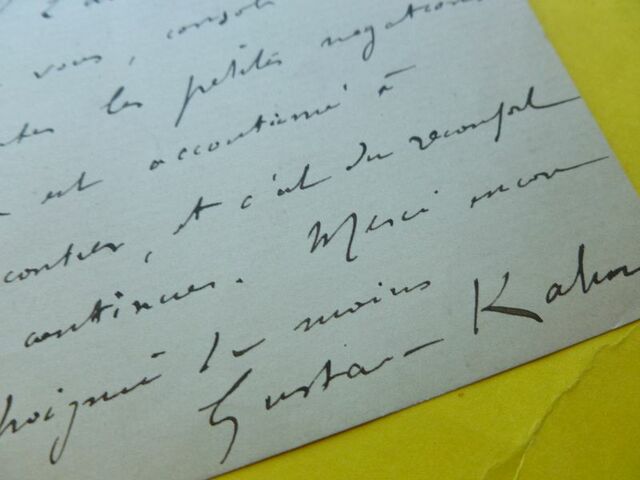 vous, consol
les petites negations
est accoutumé à
contrer, et c'est du reconfort
continuer. Merci encore
poignée de mains
Gustave Kahn